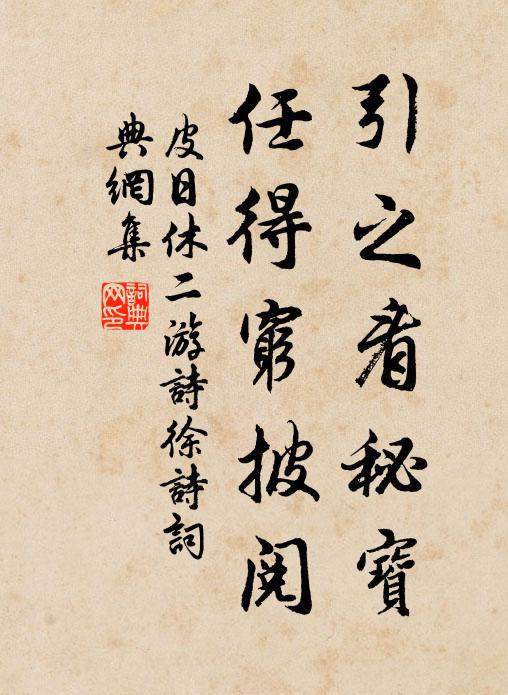 引之看秘寶
任得窮披閱
皮日休二游詩徐詩詞
典網集
詞典網印